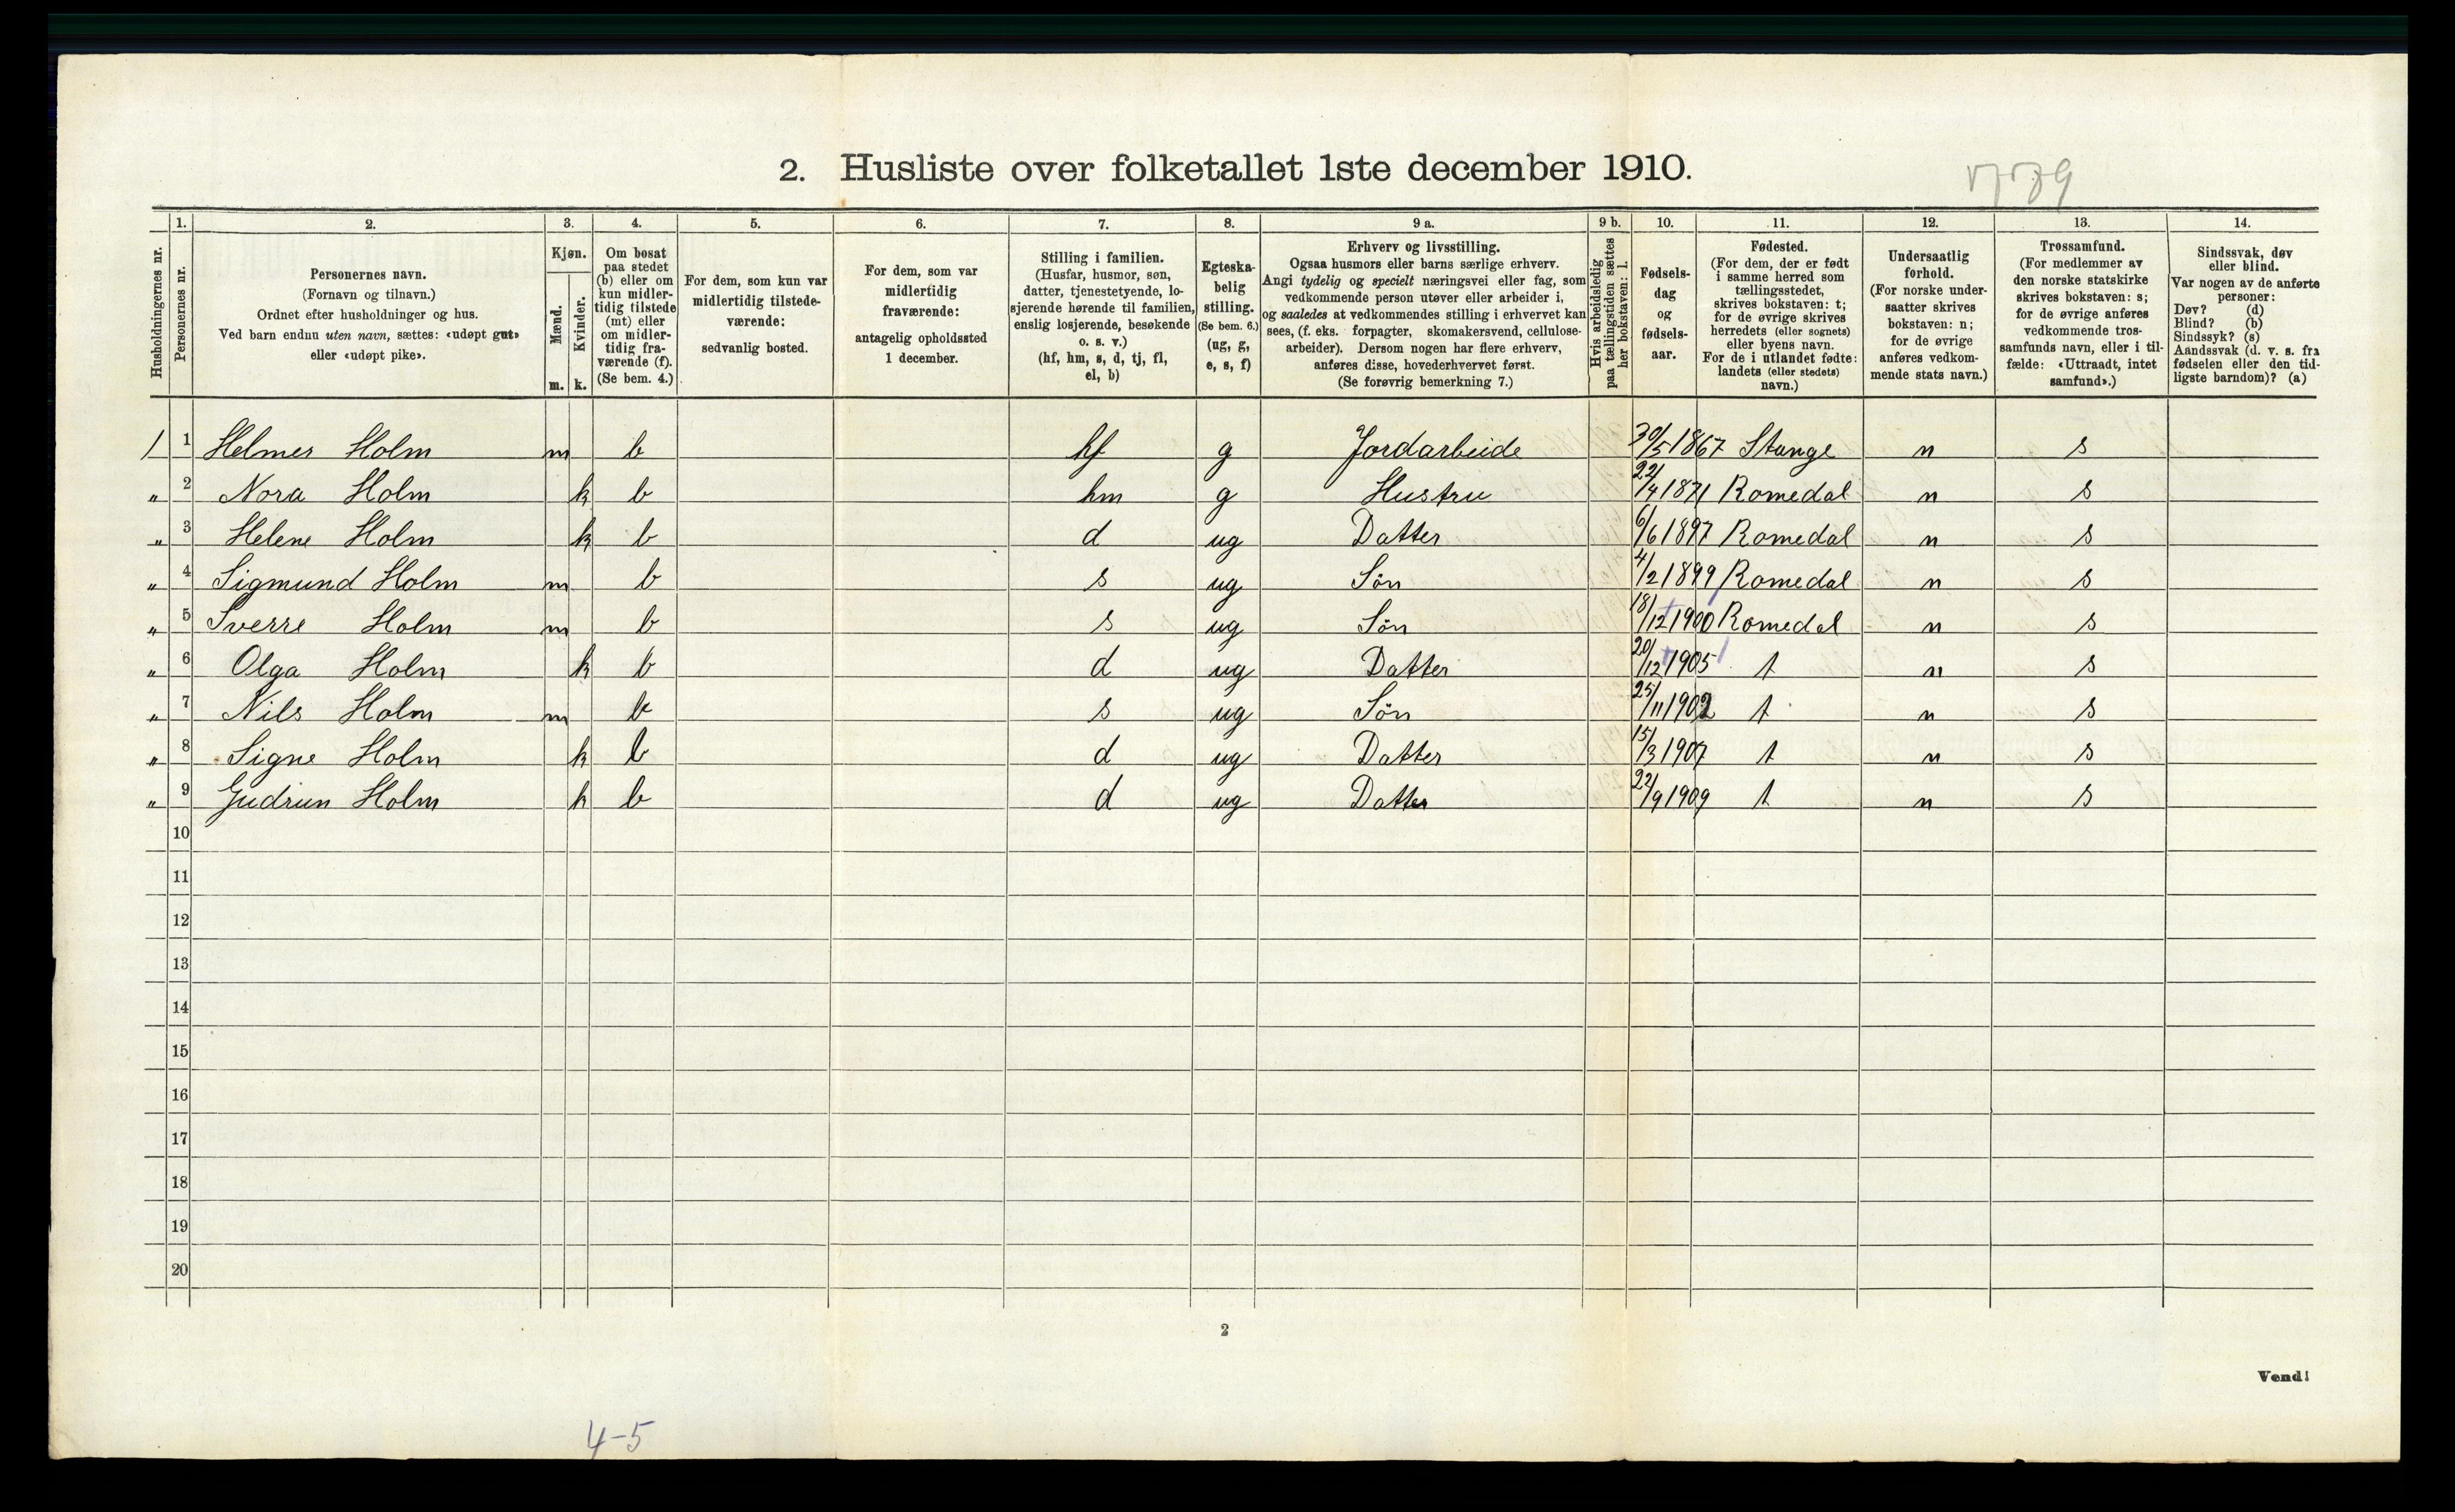 2. Husliste over folketallet 1ste december 1910.
Husholdningernes nr.
1. Personernes nr.
2. Personernes navn.
(Fornavn og tilnavn.)
Ordnet efter husholdninger og hus.
Ved barn endnu uten navn, sættes: «udøpt gut»
eller «udøpt pike».
3. Kjøn.
Mænd. m.
Kvinder. k.
4. Om bosat
paa stedet
(b) eller om
kun midler-
tidig tilstede
(mt) eller
om midler-
tidig fra-
værende (f).
(Se bem. 4.)
5. For dem, som kun var
midlertidig tilstede-
værende:
sedvanlig bosted.
6. For dem, som var
midlertidig
fraværende:
antagelig opholdssted
1 december.
7. Stilling i familien.
(Husfar, husmor, søn,
datter, tjenestetyende, lo-
sjerende hørende til familien,
enslig losjerende, besøkende
o. s. v.)
(hf, hm, s, d, tj, fl,
el, b)
8. Egteska-
belig
stilling.
(Se bem. 6.)
(ug, g,
e, s, f)
9 a. Erhverv og livsstilling.
Ogsaa husmors eller barns særlige erhverv.
Angi tydelig og specielt næringsvei eller fag, som
vedkommende person utøver eller arbeider i,
og saaledes at vedkommendes stilling i erhvervet kan
sees, (f. eks. forpagter, skomakersvend, cellulose-
arbeider). Dersom nogen har flere erhverv,
anføres disse, hovederhvervet først.
(Se forøvrig bemerkning 7.)
9 b. Hvis arbeidsledig
paa tællingstiden sættes
her bokstaven: l.
10. Fødsels-
dag
og
fødsels-
aar.
11. Fødested.
(For dem, der er født
i samme herred som
tællingsstedet,
skrives bokstaven: t;
for de øvrige skrives
herredets (eller sognets)
eller byens navn.
For de i utlandet fødte:
landets (eller stedets)
navn.)
12. Undersaatlig
forhold.
(For norske under-
saatter skrives
bokstaven: n;
for de øvrige
anføres vedkom-
mende stats navn.)
13. Trossamfund.
(For medlemmer av
den norske statskirke
skrives bokstaven: s;
for de øvrige anføres
vedkommende tros-
samfunds navn, eller i til-
fælde: «Uttraadt, intet
samfund».)
14. Sindssvak, døv
eller blind.
Var nogen av de anførte
personer:
Døv? (d)
Blind? (b)
Sindssyk? (s)
Aandssvak (d. v. s. fra
fødselen eller den tid-
ligste barndom)? (a)
1 1 Helmer Holm m b hf g Jordarbeide 30/5 1867 Stange n s
" 2 Nora Holm k b hm g Hustru 22/4 1871 Romedal n s
" 3 Helene Holm k b d ug Datter 6/6 1897 Romedal n s
" 4 Sigmund Holm m b s ug Søn 4/2 1899 Romedal n s
" 5 Sverre Holm m b s ug Søn 18/12 1900 Romedal n s
" 6 Olga Holm k b d ug Datter 20/12 1905 t n s
" 7 Nils Holm m b s ug Søn 25/11 1902 t n s
" 8 Signe Holm k b d ug Datter 15/3 1907 t n s
" 9 Gudrun Holm k b d ug Datter 22/9 1909 t n s
10
11
12
13
14
15
16
17
18
19
20
2
Vend!
4-5